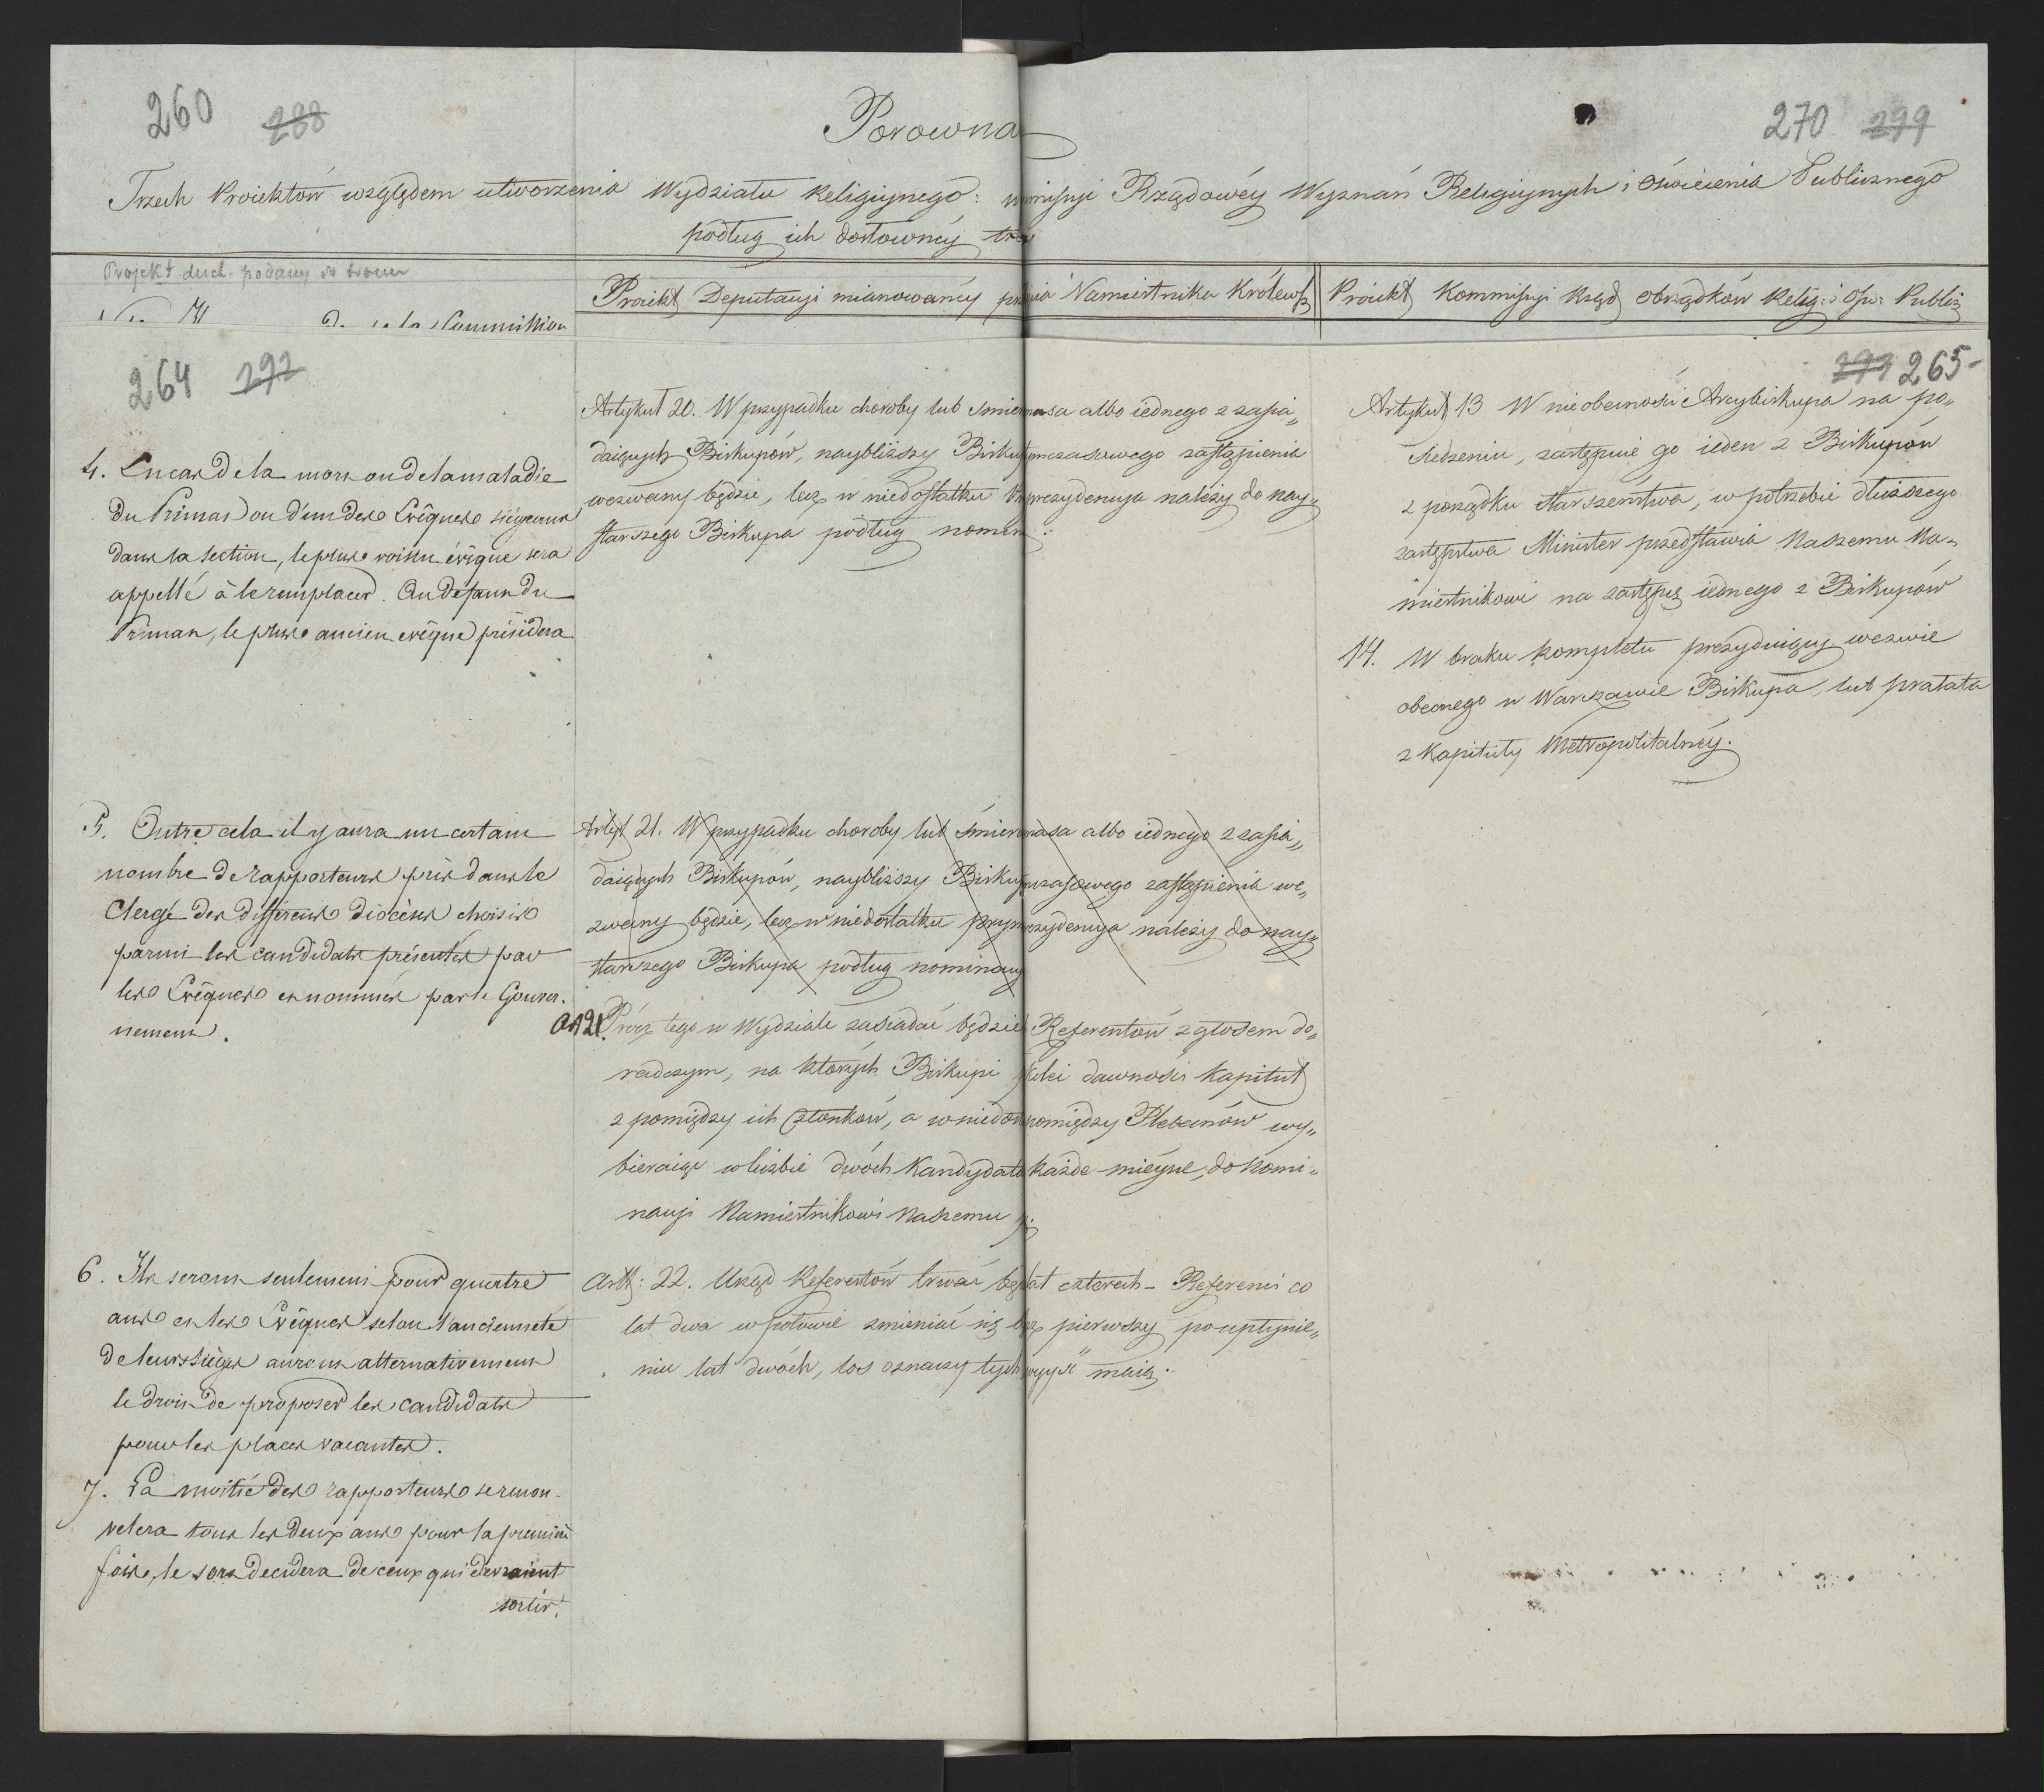 260 288
270 299
Porowna
Trzech Proiektów względem utworzenia Wydziału Religijnego: Rządowéy Wyznań Religijnych i Oświecenia Publicznego
podług ich dosłownéy
Projekt duch. podany
Proiekt Deputacyi mianowanéy Namiestnika Królewsk
Proiekt Kommissyi Rząd obrządków Relig: i Ośw: Publicz
Commission
264 292
265
4. En cas de la mort ou de la maladie
du Primas ou d'un des Evêques siégeant
dans la section, le plus voisin évêque sera
appellé à le remplacer. Au défaut du
Primas, le plus ancien evêque présidera
5. Outre cela il y aura un certain
nombre de rapporteurs pris dans le
Clergé des differents diocèses choisis
parmi les candidats présentés par
les Evêques et nommés par le Gouver-
nement.
6. Ils seront seulement pour quatre
ans et les Evêques selon l'ancienneté
de leurs sièges auront alternativement
le droit de proposer les candidats
pour les places vacantes.
7. La moitié des rapporteurs se renou-
velera tous les deux ans pour la premiere
fois, le sort decidera de ceux qui devraient
sortir.
Artykuł 20. W przypadku choroby lub śmier masa albo iednego z zasia„
daiących Biskupów, naybliższy Bisku czasowego zastąpienia
wezwany będzie, lecz w niedostatku prezydencya należy do nay„
starszego Biskupa podług nomin
Artyk 21. W przypadku choroby lub śmier masa albo iednego z zasia„
daiących Biskupów, naybliższy Bisku czasowego zastąpienia we„
zwany będzie, lecz w niedostatku Prym rezydencya należy do nay„
starszego Biskupa podług nominacy
Art 21. Prócz tego w Wydziale zasiadać będzie Referentów z głosem do„
radczym, na których Biskupi kolei dawności Kapituł
z pomiędzy ich Członków, a w niedos pomiędzy Plebanów wy„
bieraiąc w liczbie dwóch Kandydató każde mieysce, do Nomi„
nacyi Namiestnikowi Naszemu
Artk: 22. Urząd Referentów trwać będ lat czterech – Referenci co
lat dwa w połowie zmieniać się pierwszy po upłynie„
niu lat dwóch, los oznaczy tych wyyść maią.
Artykuł 13 W nieobecności Arcybiskupa na po„
siedzeniu, zastępuie go ieden z Biskupów
z porządku starszeństwa, w potrzebie dłuższego
zastępstwa Minister przedstawia Naszemu Na„
miestnikowi na zastępcę iednego z Biskupów
14. W braku kompletu prezyduiący wezwie
obecnego w Warszawie Biskupa, lub prałata
z Kapituły Metropolitalnéy.